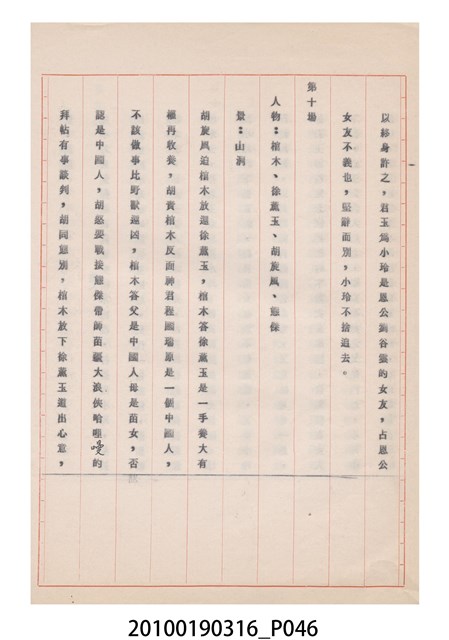 以終身許之，君玉為小玲是恩公葉谷雲的女友，占恩公
女友不義也，堅辭而別，小玲不捨追去。
第十場
人物：棺木、徐薰玉、胡旋風、熊傑
景：山洞
胡旋風迫棺木放還徐薰玉，棺木答徐薰玉是一手養大有
權再收養，胡責棺木反面神君程國瑞原是一個中國人，
不該做事比野獸還凶，棺木答父是中國人母是苗女，否
認是中國人，胡怒要戰接熊傑帶師苗疆大浪俠哈哩嘜的
拜帖有事談判，胡同熊別，棺木放下徐薰玉道出心意，
20100190316_P046